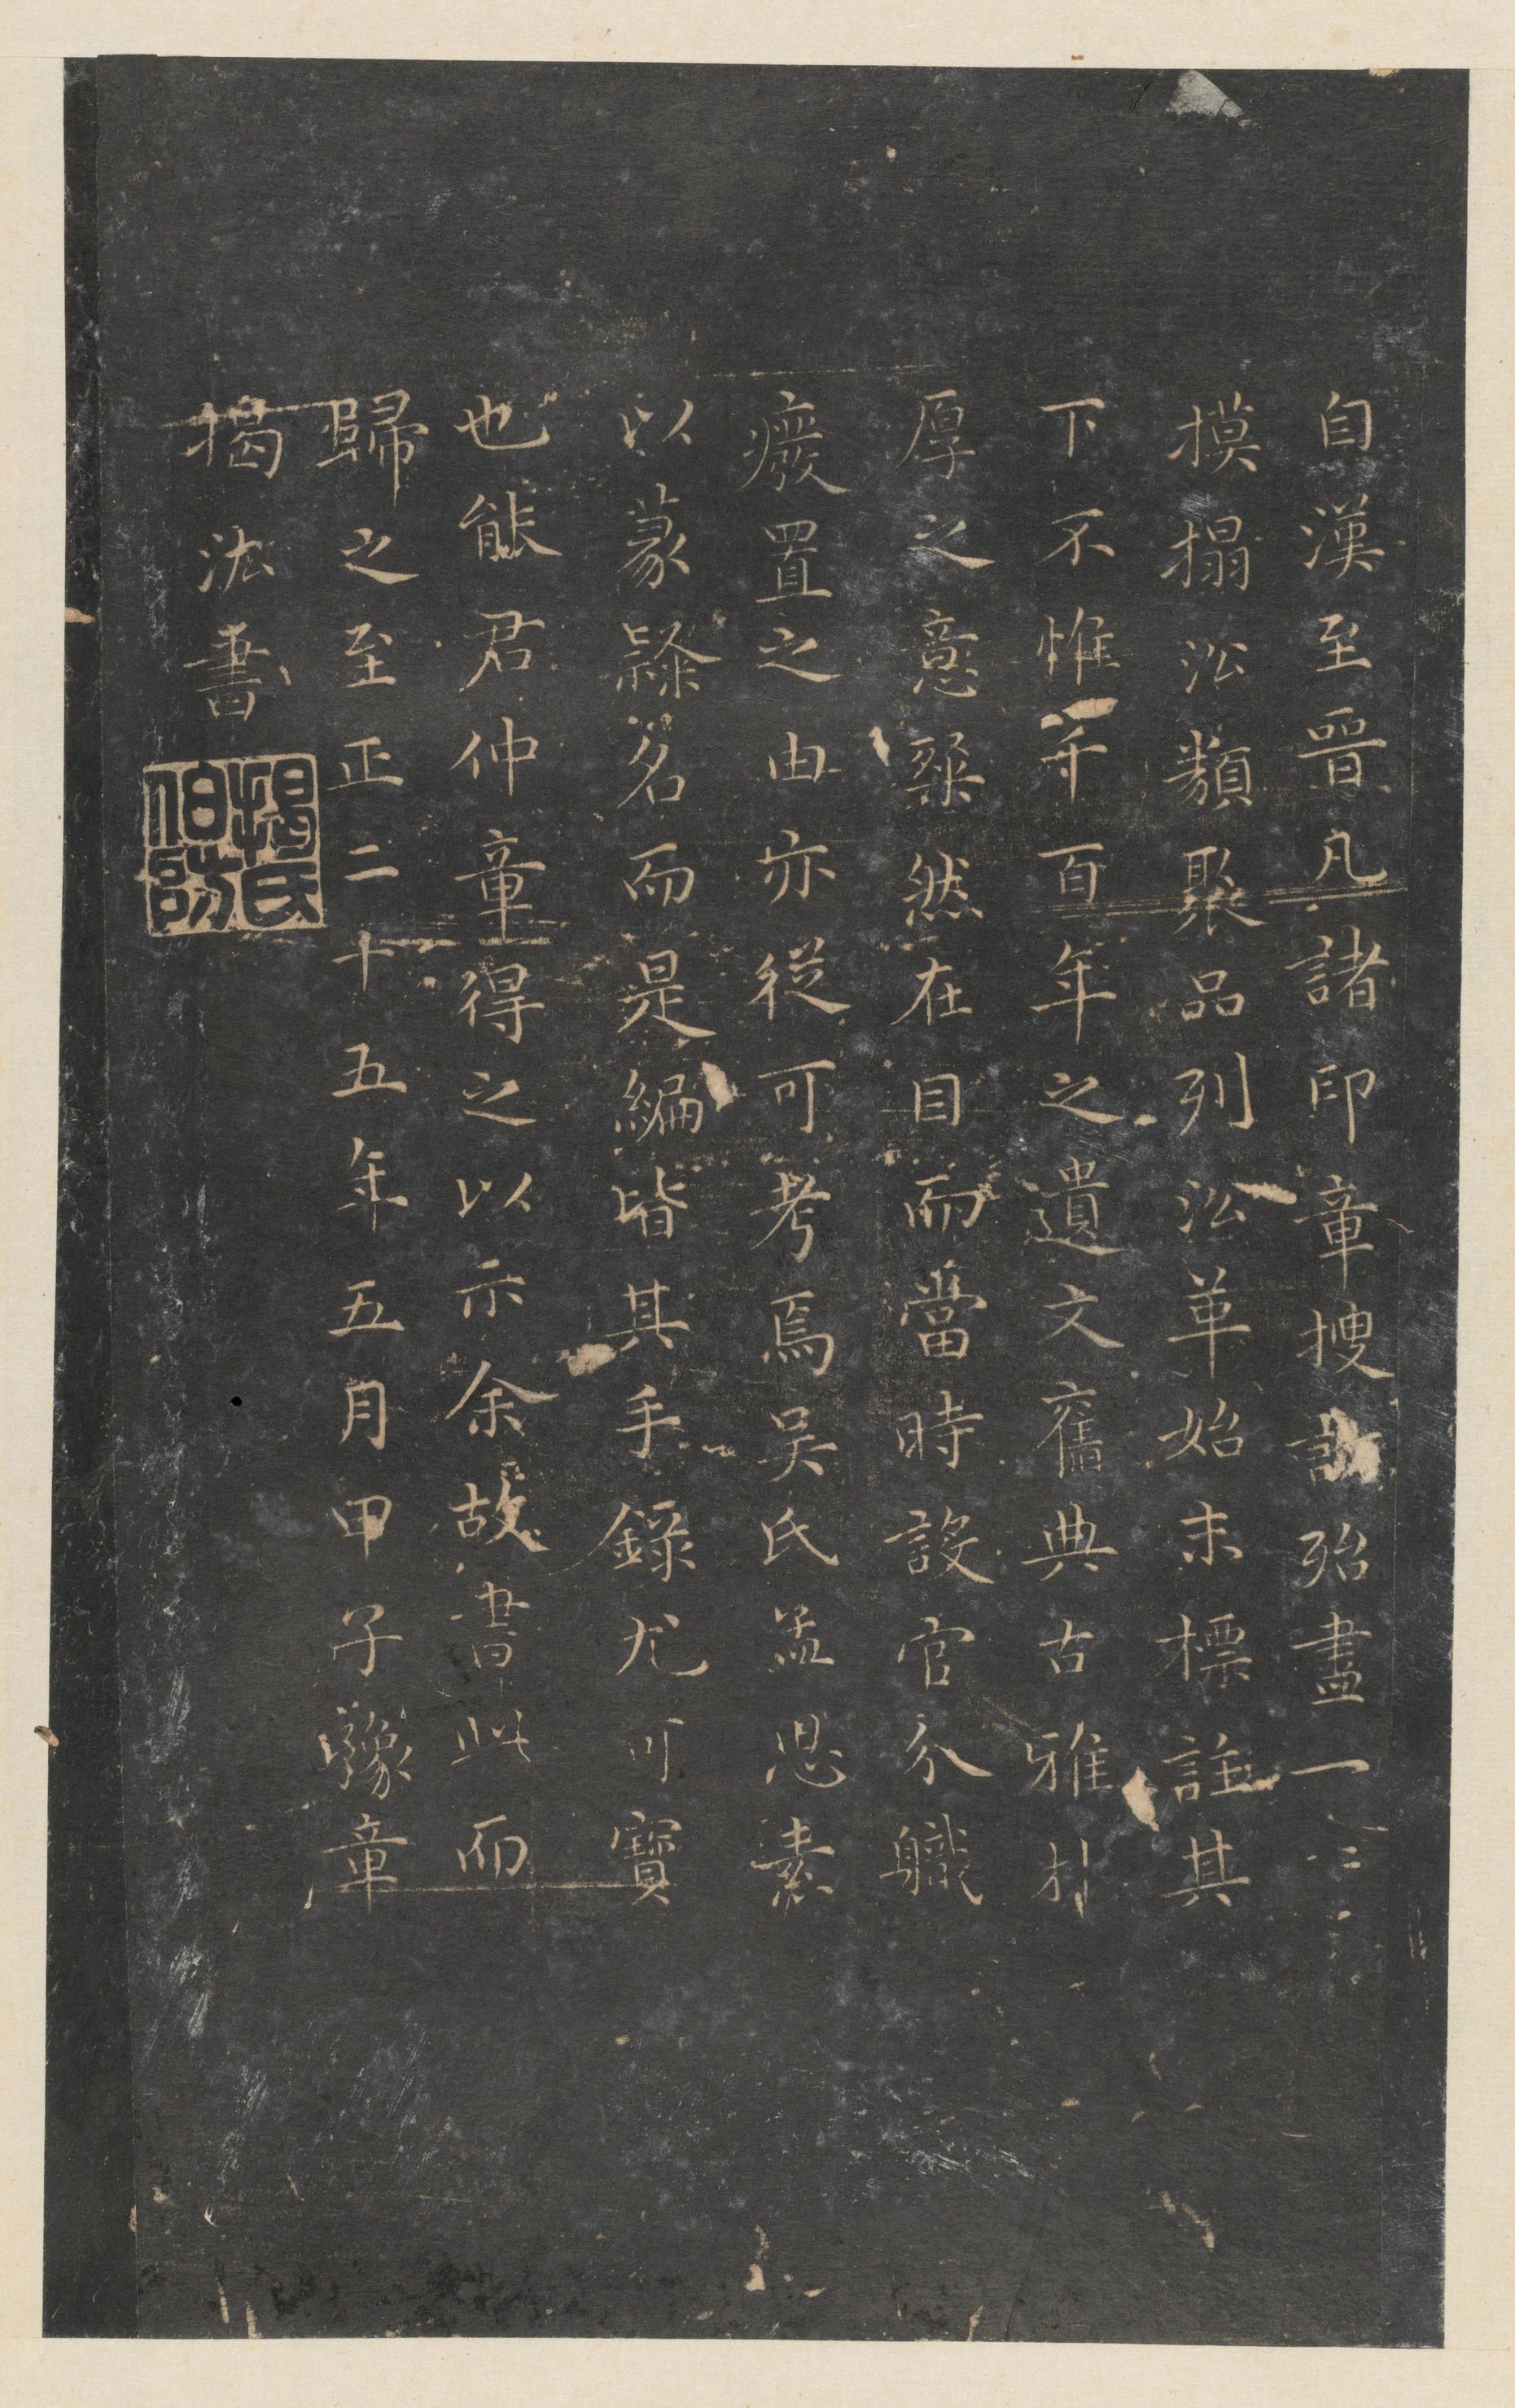 自漢至晉凡諸印章搜訪殆盡一二
摸搨㳂類聚品列㳂革始末標註其
下不惟千百年之遺文舊典古雅朴
厚之意粲然在目而當時設官分職
癈置之由亦從可考焉吴氏孟思素
以篆隸名而是編皆其手錄尤可寶
也熊君仲章得之以示余故書此而
歸之至正二十五年五月甲子豫章
揭汯書
揭氏伯防